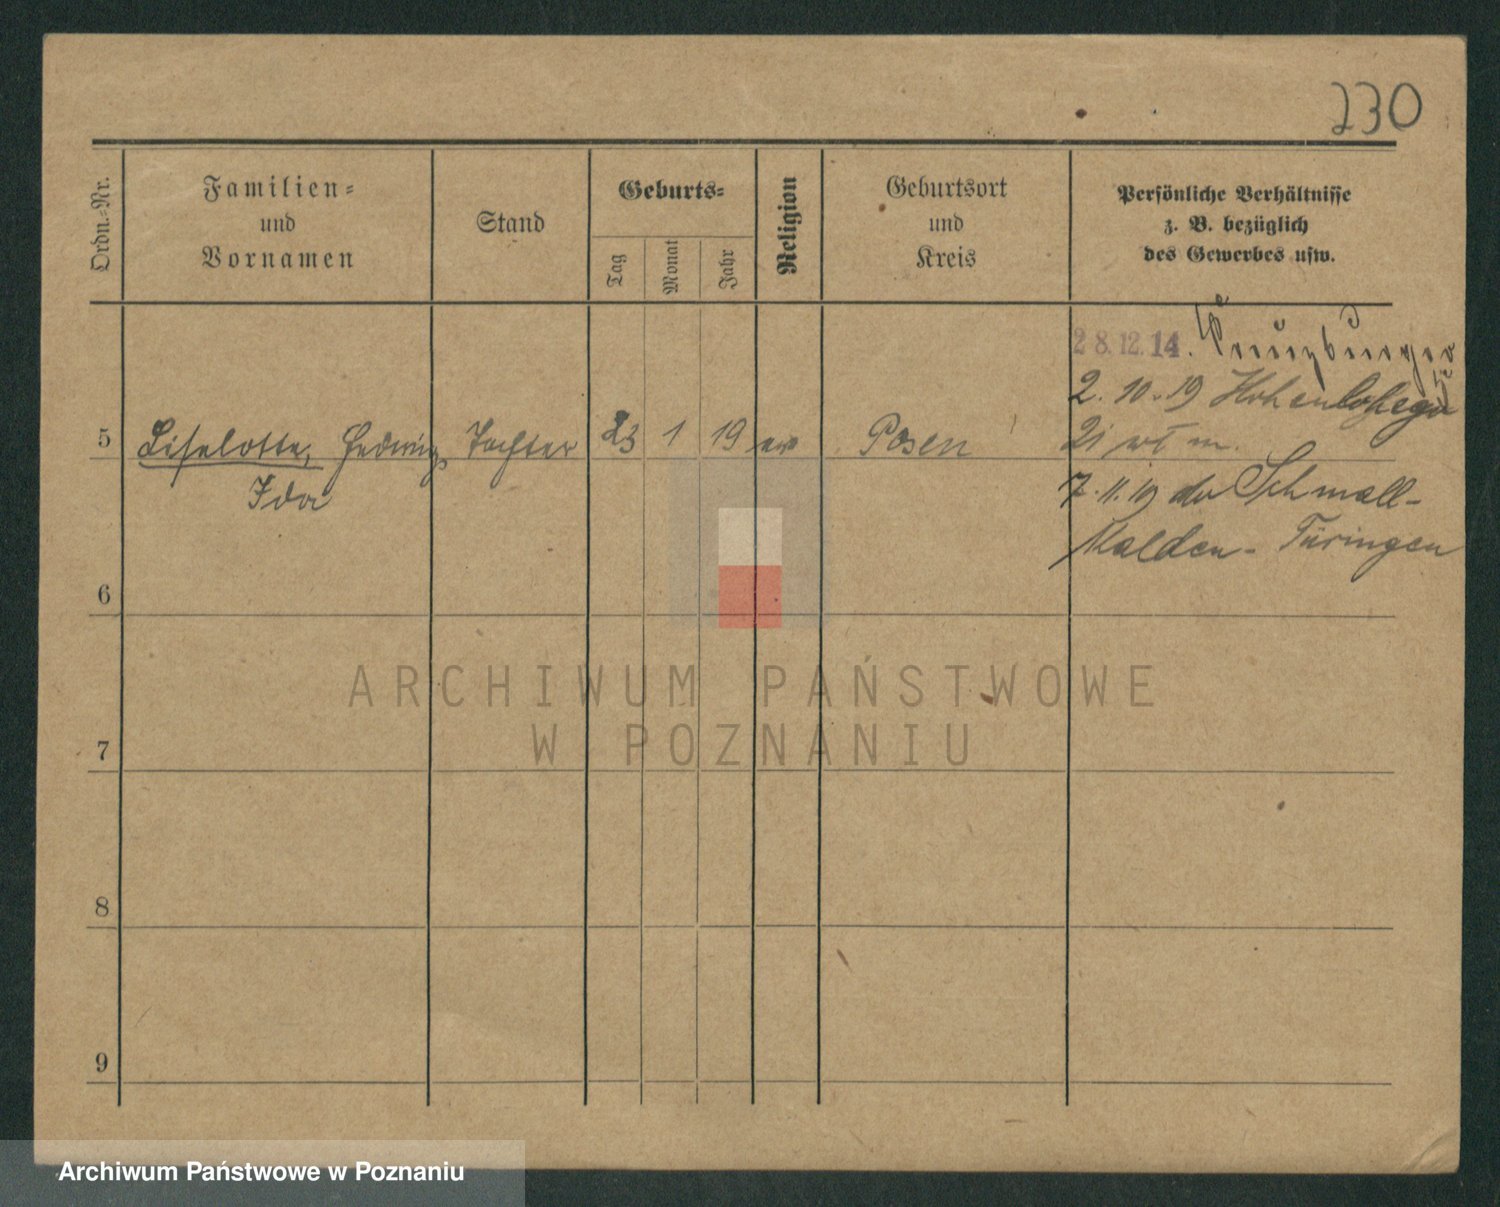 230
Ordn.=Nr.
Familien=
und
Vornamen
Stand
Geburts=
Tag
Monat
Jahr
Religion
Geburtsort
und
Kreis
Persönliche Verhältnisse
z. B. bezüglich
des Gewerbes usw.
28.12.14. Creuzburger
2. 10. 19 Hohenlohe
5 Liselotte, Hedwig, Tochter 23 1 19 ev Posen
21
Ida
7. 11. 19 Schmall-
kalden - Türingen
6
ARCHIWUM PAŃSTWOWE
W POZNANIU
7
8
9
Archiwum Państwowe w Poznaniu